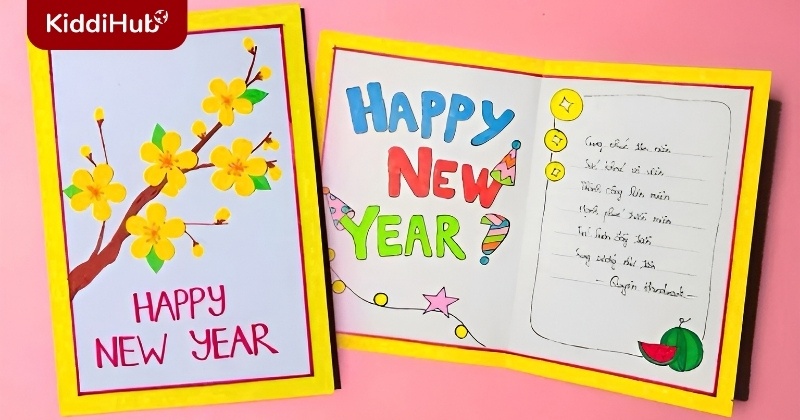 KiddiHub
HAPPY
NEW YEAR
HAPPY
NEW
YEAR ?
Cung chúc tân niên
Sức khoẻ vô biên
Thành công liên miên
Hạnh phúc triền miên
Túi luôn đầy tiền
Sung sướng như tiên
- Handmade -